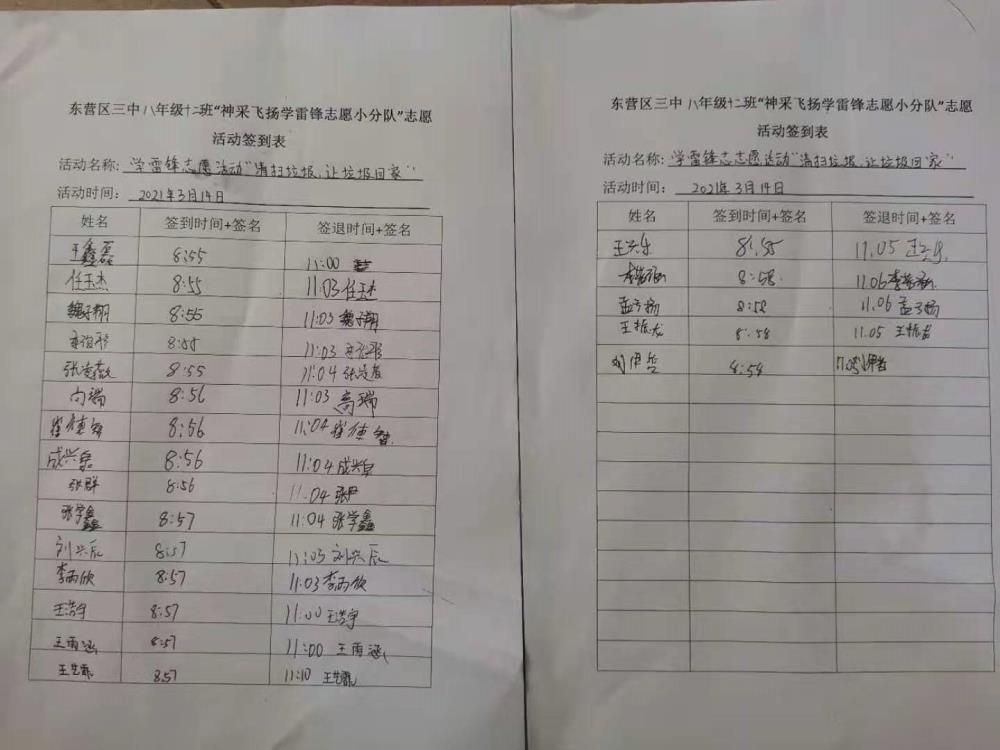 东营区三中八年级十二班“神采飞扬学雷锋志愿小分队”志愿
活动签到表
活动名称: 学雷锋志愿活动“清扫垃圾,让垃圾回家”
活动时间: 2021年3月14日
姓名 签到时间+签名 签退时间+签名
王鑫磊 8:55 11:00
任玉杰 8:55 11:03 任玉杰
魏子翔 8:55 11:03 魏子翔
8:55 11:03
8:55 11:04
8:56 11:03 高瑞
崔德智 8:56 11:04 崔德智
成兴泉 8:56 11:04 成兴泉
张群 8:56 11.04
张学鑫 8:57 11:04 张学鑫
刘兴辰 8:57 11:03 刘兴辰
李雨欣 8:57 11:03 李雨欣
王浩宇 8:57 11:00 王浩宇
王雨涵 8:57 11:00 王雨涵
王艺霏 8:57 11:10 王艺霏
东营区三中八年级十二班“神采飞扬学雷锋志愿小分队”志愿
活动签到表
活动名称: 学雷锋志志愿活动“清扫垃圾,让垃圾回家”
活动时间: 2021年3月14日
姓名 签到时间+签名 签退时间+签名
王兴乐 8:55 11.05 王兴乐
8:58 11.06
孟子扬 8:58 11.06 孟子扬
王振龙 8:58 11.05 王振龙
8:58 11.05